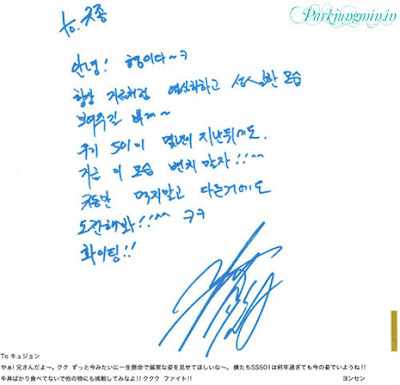 Parkjungmin.in
to. 규종
안녕! 형이다~ㅋ
항상 지금처럼 열심히하고 성실한 모습
보여주길 바래~
우리 501이 몇년이 지난뒤에도.
지금 이 모습 변치 말자!!^^
규동만 먹지말고 다른거에도
도전해봐!!^^ ㅋㅋ
화이팅!!
To キュジョン
やぁ!兄さんだよ〜。クク ずっと今みたいに一生懸命で誠実な姿を見せてほしいな〜。僕たちSS501は何年過ぎても今の姿でいようね!!
牛丼ばかり食べてないで他の物にも挑戦してみなよ!!ククク ファイト!! ヨンセン